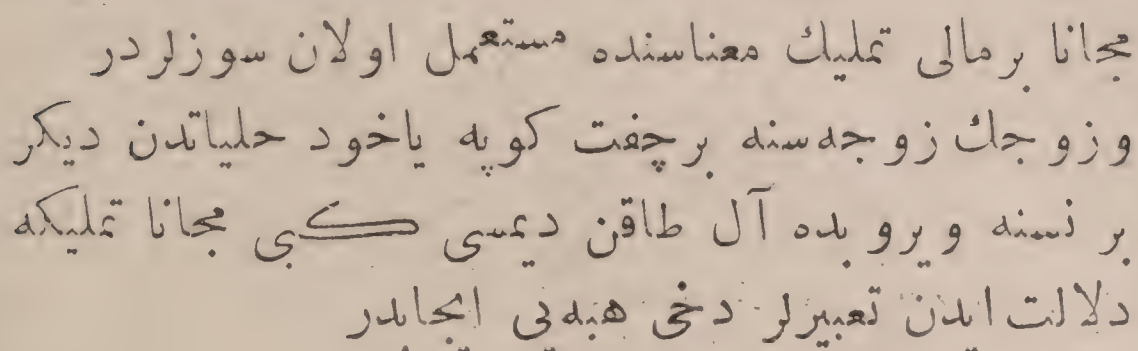 مجانا بر مالی تملیك معناسنده مستعمل اولان سوزلردر
و زوجك زوجه‌سنه بر چفت کوپه یاخود حلیاتدن دیکر
بر نسنه ویروبده آل طاقن دیمسی کبی مجانا تملیکه
دلالت ایدن تعبیرلر دخی هبه‌یی ایجابدر